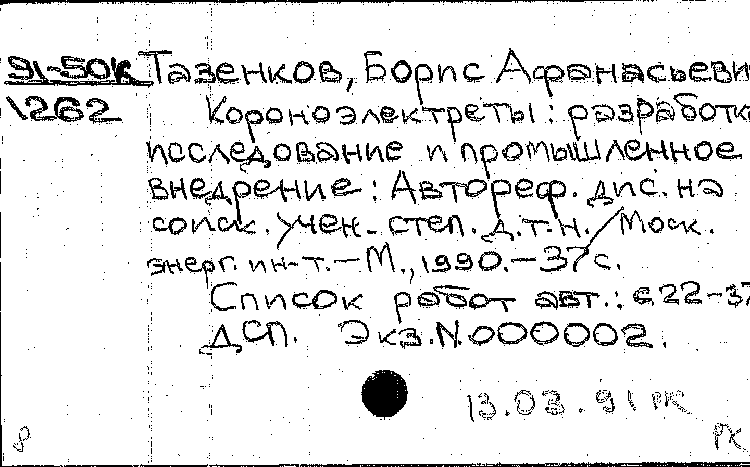 91-50к Тазенков, Борис Афанасьеви
1262 Короноэлектреты: разработка
исследование и промышленное
внедрение: Автореф. дис. на
соиск. учен. степ. д.т.н. / Моск.
энерг. ин-т. — М., 1990. — 37 с.
Список работ авт.: с 22-37
ДСП. Экз. N 000002.
13.03.91 РК
8 РК